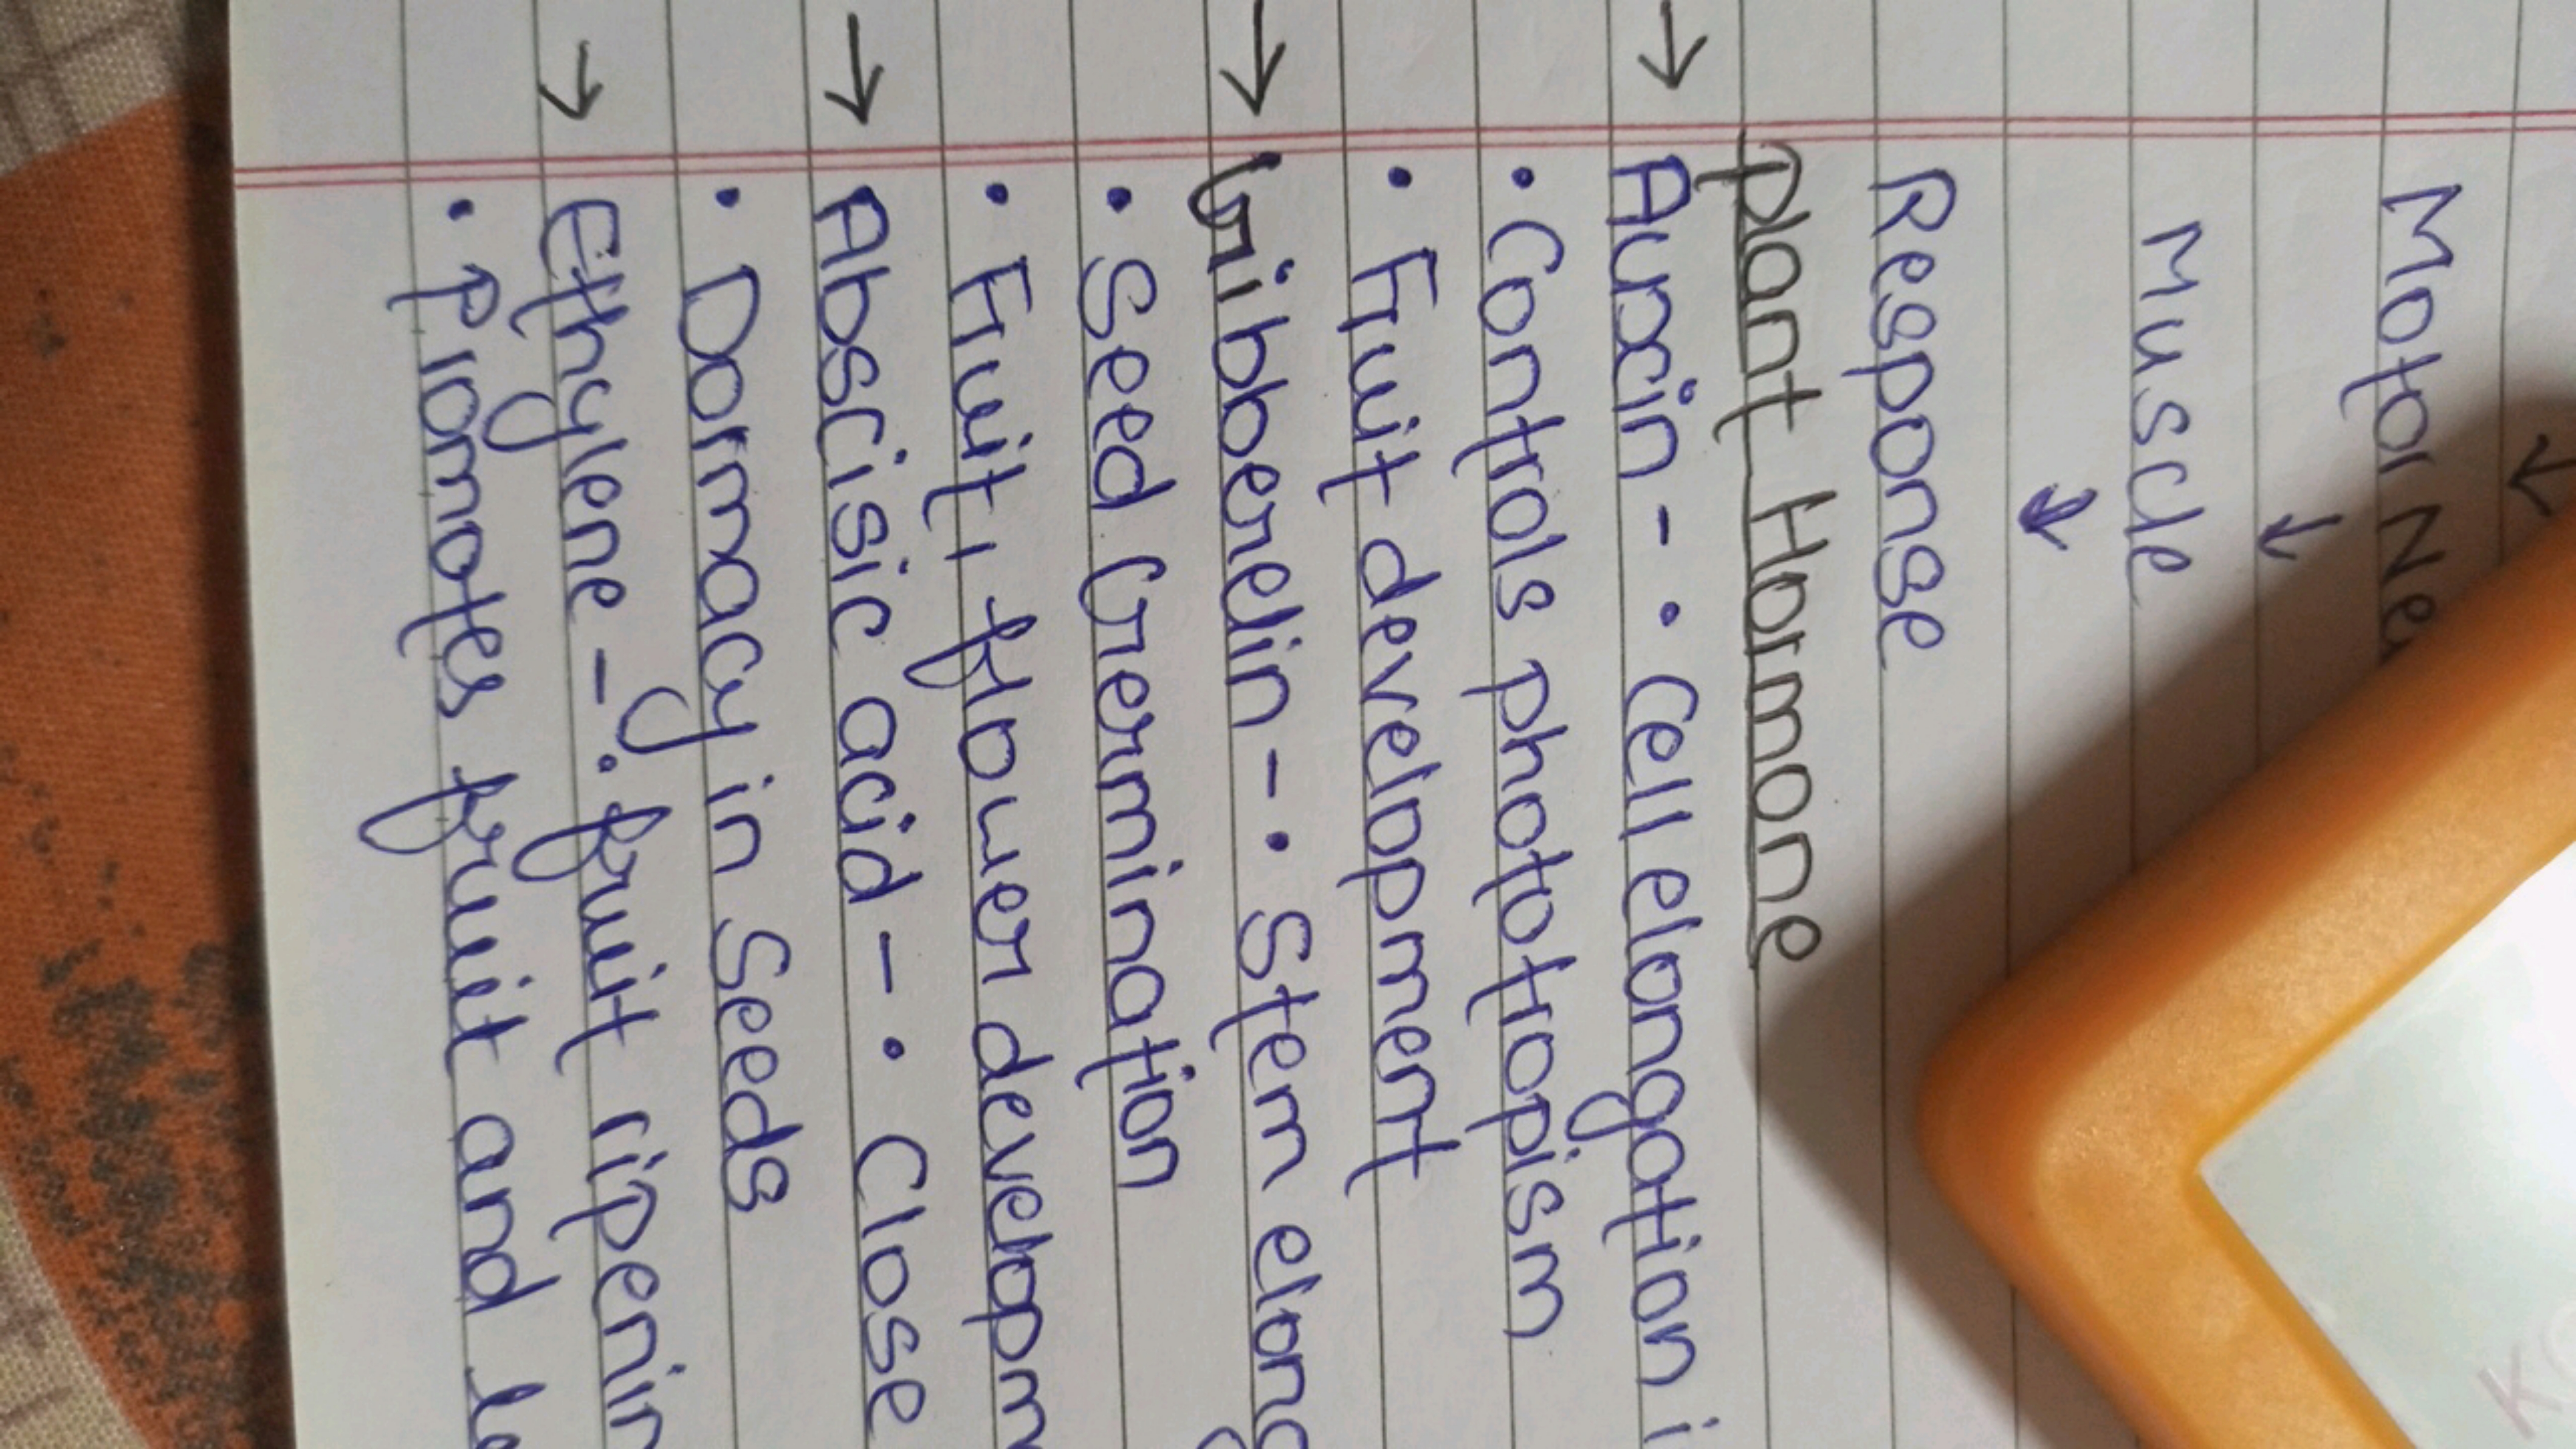 ↓
Motor
↓
Muscle
↓
Response
plant Hormone
→ Auxin - • Cell elongation
• Controls phototropism
• Fruit development
→ Gibberelin - • Stem
• Seed Germination
• Fruit, flower
→ Abscisic acid - • Close
• Dormacy in Seeds
→ Ethylene - • fruit
• Promotes fruit and